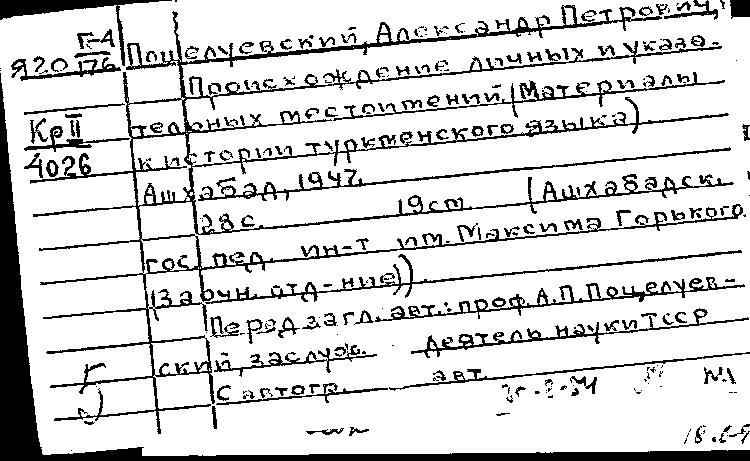 Я20 Г-4/176 Поцелуевский, Александр Петрович,
Происхождение личных и указа-
Кр II тельных местоимений. (Материалы
4026 к истории туркменского языка).
Ашхабад, 1947.
28 с. 19 см (Ашхабадск.
гос. пед. ин-т им. Максима Горького.
(Заочн. отд-ние))
Перед загл. авт.: проф. А.П. Поцелуев-
ский, заслуж. деятель науки ТССР
С автогр. авт.
№1